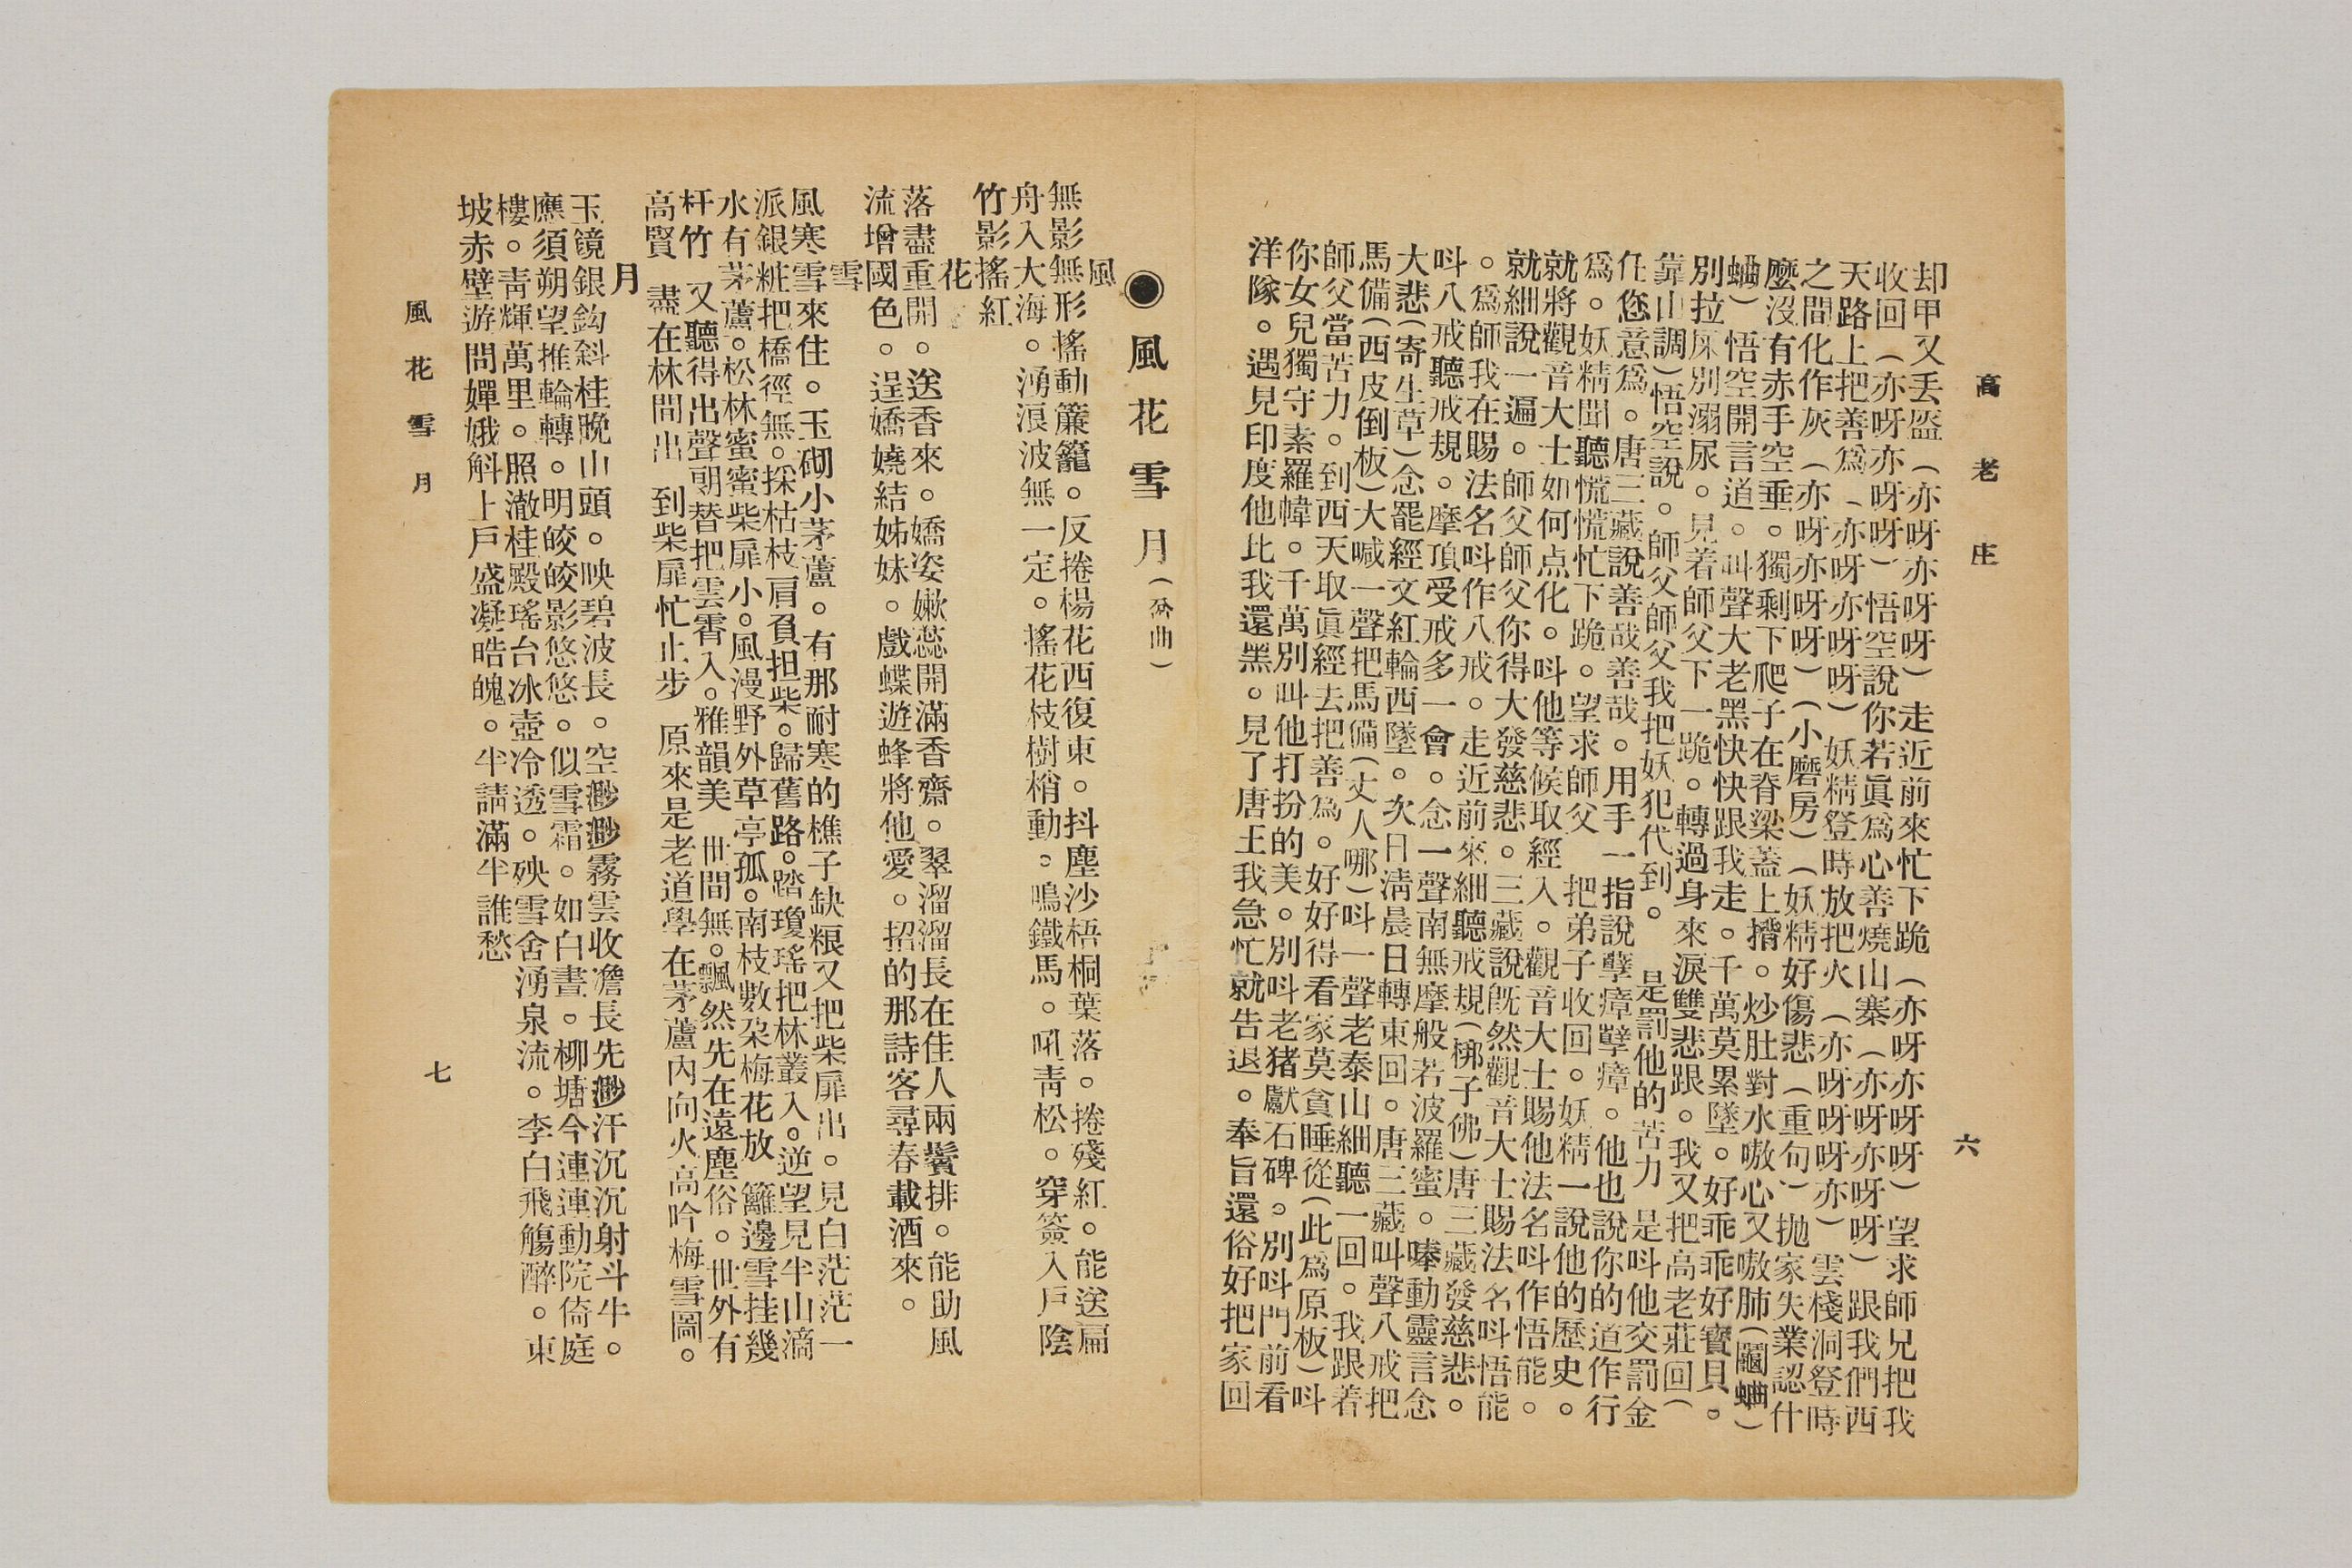 高老庄
六
却甲又丢盔（亦呀亦呀呀）走近前來忙下跪（亦呀亦呀呀）望求師兄把我
收回（亦呀亦呀呀）悟空說你若眞爲心善燒山寨（亦呀亦呀呀）跟我們西
天路上把善爲（亦呀亦呀呀）妖精登時放把火（亦呀呀呀亦）雲棧洞登時
之間化作灰（亦呀亦呀呀）（小磨房）（妖精好傷悲（重句）抛家失業認什
麼沒有赤手空垂。獨剩下爬子在脊梁蓋上揹。炒肚對水嗷心又嗷肺（
）悟空開言道。叫聲大老黑快快跟我走。千萬莫累墜。好乖乖好寶貝。
別拉屎別溺尿。見着師父下一跪。轉過身來淚雙悲跟。我又把高老莊回（
靠山調）悟空說。師父師父我把妖犯代到。是罰他的苦力是呌他交罰金
任您意爲。唐三藏說善哉善哉。用手一指說孽瘴孽瘴。他也說你的道作行
爲。妖精聞聽慌慌忙下跪。望求師父把弟子收回。妖精一說他的歷史。
就將觀音大士如何点化。呌他等候取經入。觀音大士賜他法名呌作悟能。
就細說一遍。師父師父你得大發慈悲。三藏說既然觀音大士賜法名呌悟能
。爲師我在賜法名呌作八戒。走近前來細聽戒規（梆子佛）唐三藏發慈悲。
呌八戒聽戒規。摩頂受戒多一會。念一聲南無摩般若波羅蜜。嗪動靈言念
大悲（寄生草）念罷經文紅輪西墜。次日淸晨日轉東回。唐三藏叫聲八戒把
馬備（西皮倒板）大喊一聲把馬備（丈人哪）呌一聲老泰山細聽一回。我跟着
師父當苦力。到西天取眞經去把善爲。好好得看家莫貪睡從（此爲原板）呌
你女兒獨守素羅幃。千萬別叫他打扮的美。別呌老猪獻石碑。別呌門前看
洋隊。遇見印度他比我還黑。見了唐王我急忙就告退。奉旨還俗好把家回
◉風花雪月（岔曲）
風
無影無形搖動簾籠。反捲楊花西復東。抖塵沙梧桐葉落。捲殘紅。能送扁
舟入大海。湧浪波無一定。搖花枝樹梢動。鳴鐵馬。吼靑松。穿簽入戶陰
竹影搖紅
花
落盡重開。送香來。嬌姿嫩蕊開滿香齋。翠溜溜長在佳人兩鬢排。能助風
流增國色。逞嬌嬈結姊妹。戲蝶遊蜂將他愛。招的那詩客尋春載酒來。
雪
風寒雪來住。玉砌小茅蘆。有那耐寒的樵子缺粮又把柴扉出。見白茫茫一
派銀粧把橋徑無。採枯枝肩負担柴。歸舊路。踏瓊瑤把林叢入。逆望見半山滴
水有茅蘆。松林蜜蜜柴扉小。風漫野外草亭孤。南枝數朶梅花放籬邊雪挂幾
杆竹又聽得出聲朗替把雲霄入。雅韻美世間無。飄然先在遠塵俗。世外有
高賢盡在林間出到柴扉忙止步原來是老道學在茅蘆內向火高吟梅雪圖。
月
玉鏡銀鈎斜桂晩山頭。映碧波長。空渺渺霧雲收澹長先渺汗沉沉射斗牛。
應須朔望推輪轉。明皎皎影悠悠。似雪霜。如白晝。柳塘今連連動院倚庭
樓。靑輝萬里。照澈桂殿瑤台冰壺冷透。殃雪舍湧泉流。李白飛觴醉。東
坡赤壁游問嬋娥斛上戶盛凝皓魄。半請滿半誰愁
風花雪月
七